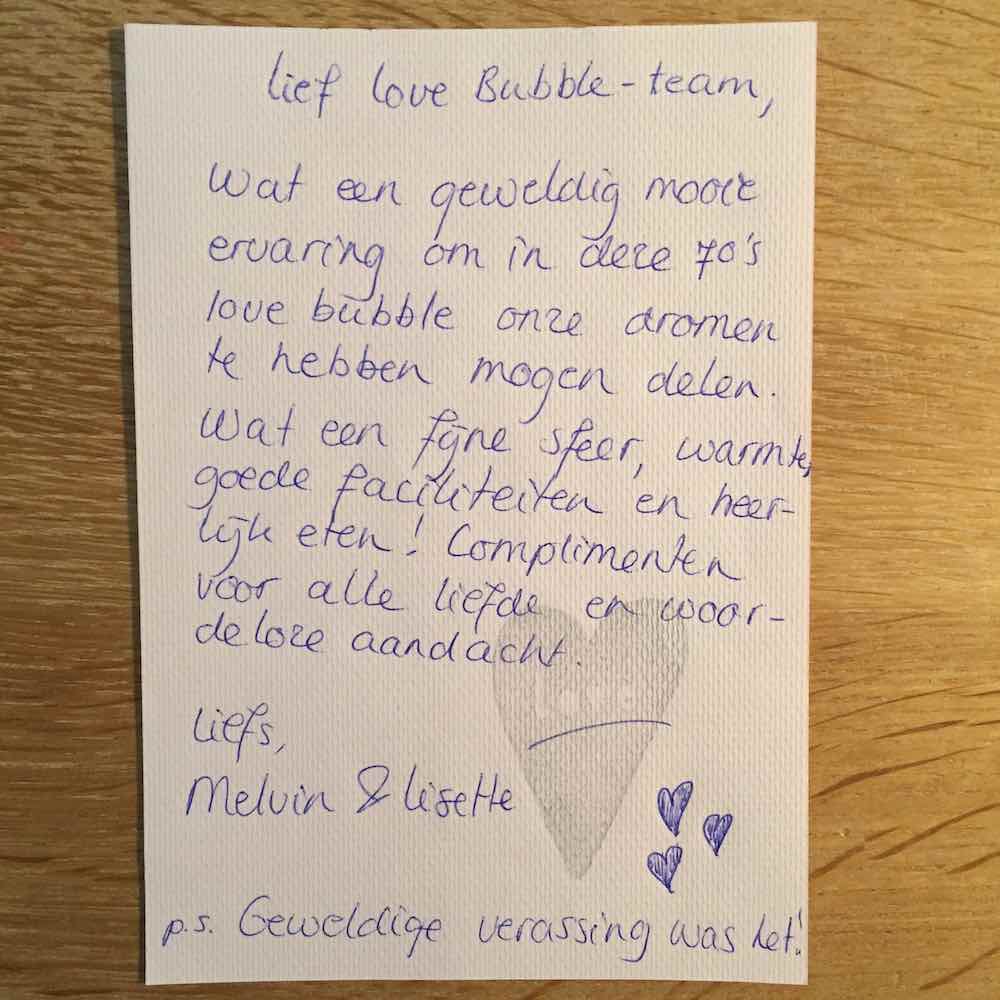 lief love Bubble-team,
Wat een geweldig mooie
ervaring om in deze 70's
love bubble onze dromen
te hebben mogen delen.
Wat een fijne sfeer, warmte,
goede faciliteiten en heer-
lijk eten! Complimenten
voor alle liefde en woor-
deloze aandacht.
liefs,
Melvin & lisette
p.s. Geweldige verassing was het!